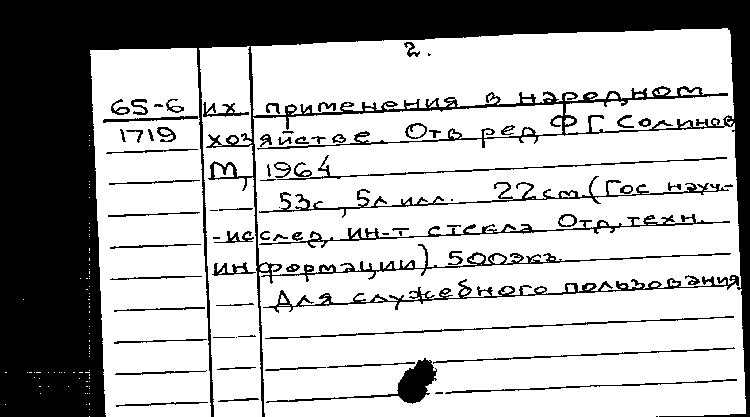 2.
65-6 их применения в народном
1719 хозяйстве. Отв ред Ф.Г. Солинов
М, 1964
53с, 5л илл. 22см (Гос научн-
-исслед. ин-т стекла Отд. техн.
информации). 500экз
Для служебного пользования